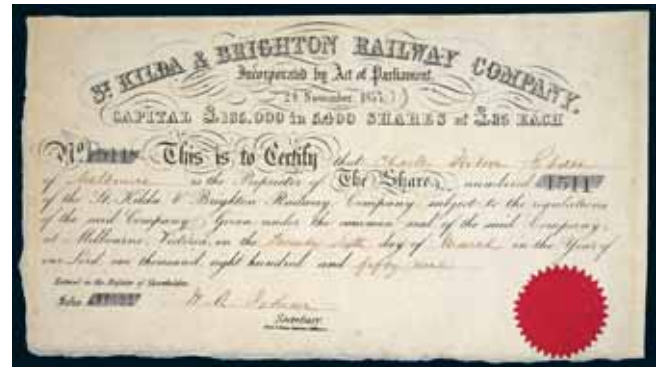 ST. KILDA & BRIGHTON RAILWAY COMPANY.
Incorporated by Act of Parliament.
24 November 1857.
CAPITAL £185.000 in 5.400 SHARES of £35 EACH
No. 1511 This is to Certify that Charles
of Melbourne is the Proprietor of The Share, numbered 1511
of the St. Kilda & Brighton Railway Company subject to the regulations
of the said Company; Given under the common seal of the said Company,
at Melbourne, Victoria, on the Twenty day of March in the Year of
our Lord, one thousand, eight hundred and fifty nine
Entered in the Register of Shareholders.
Folio
Secretary.